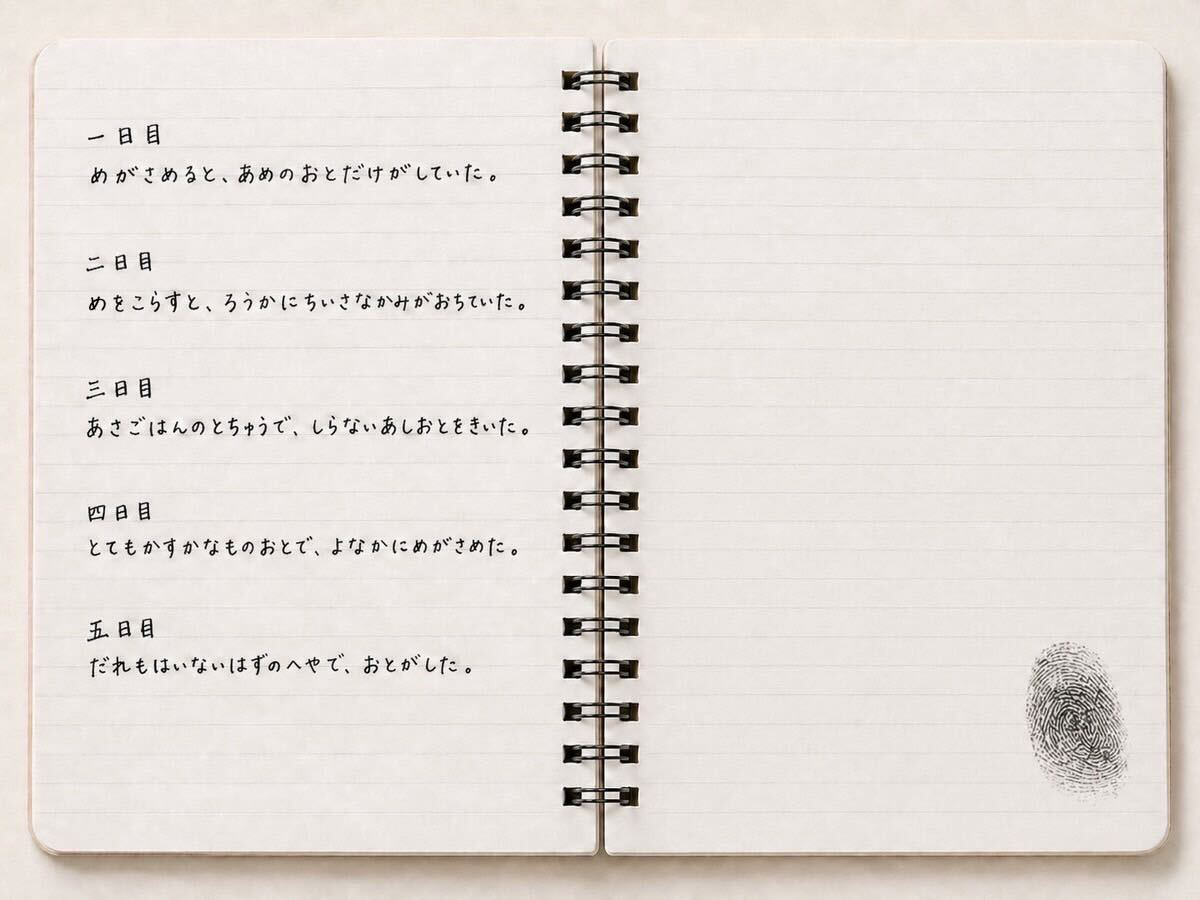 一日目
めがさめると、あめのおとだけがしていた。
二日目
めをこらすと、ろうかにちいさなかみがおちていた。
三日目
あさごはんのとちゅうで、しらないあしおとをきいた。
四日目
とてもかすかなものおとで、よなかにめがさめた。
五日目
だれもはいないはずのへやで、おとがした。